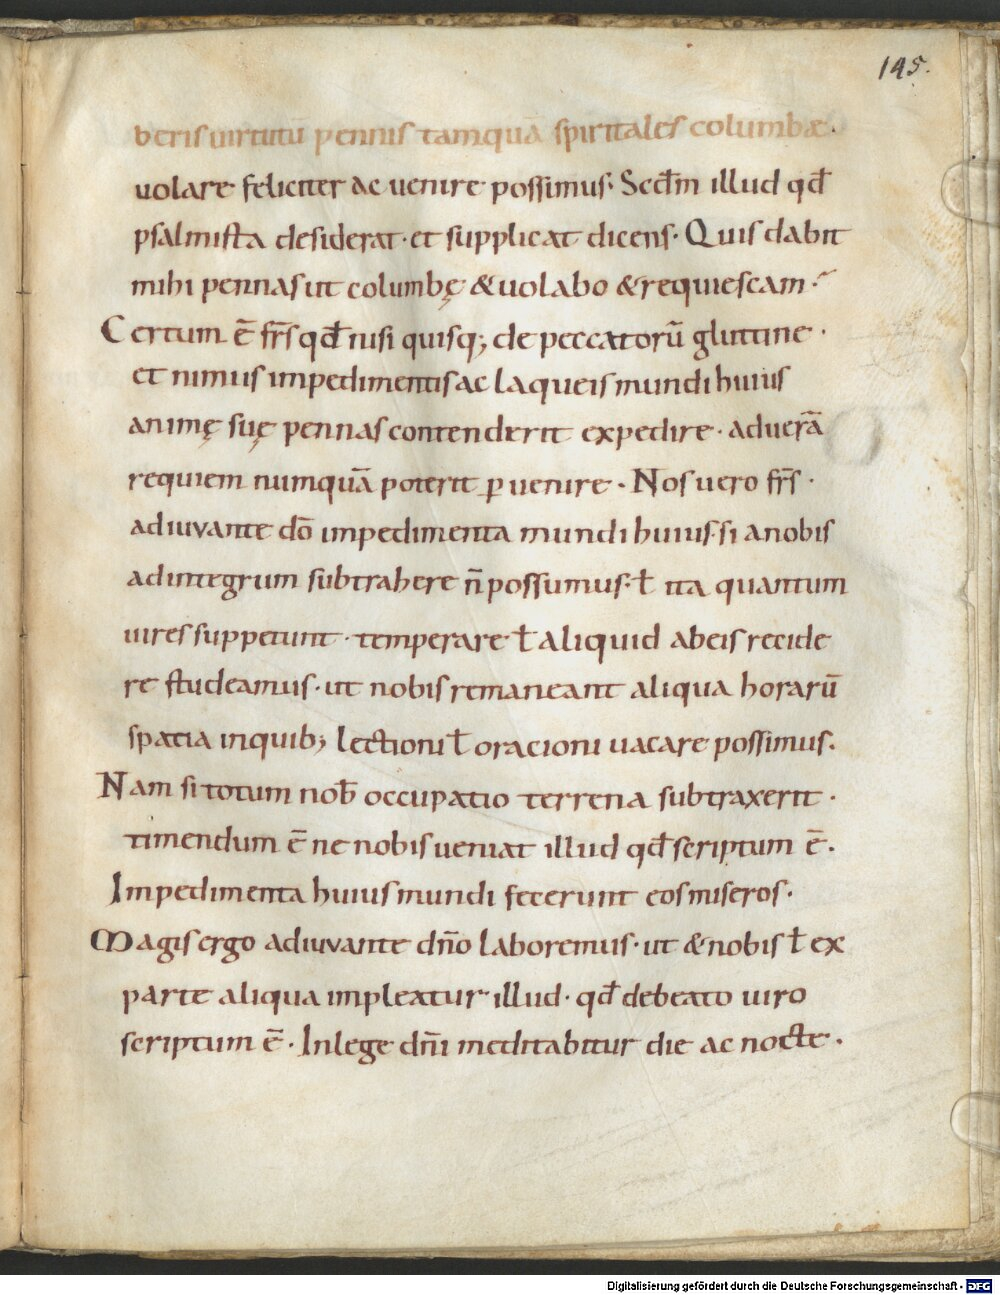 145.
veris uirtutū pennis tamquā spiritales columbæ.
uolare feliciter ac uenire possimus· Scđm illud qđ
psalmista desiderat· et supplicat dicens· Quis dabit
mihi pennas ut columbę & uolabo & requiescam·
Certum ē frs̄ qđ nisi quisq; de peccatorū gluttine·
et nimiis impedimentis ac laqueis mundi huius
animę suę pennas contenderit expedire· ad uerā
requiem numquā poterit ꝑuenire· Nos uero frs̄·
adiuvante dō impedimenta mundi huius· si a nobis
ad integrum subtrahere n̄ possumus· ł ita quantum
uires suppetunt· temperare ł aliquid ab eis recide
re studeamus· ut nobis remaneant aliqua horarū
spatia in quib; lectioni ł oracioni uacare possimus.
Nam si totum nob̄ occupatio terrena subtraxerit·
timendum ē ne nobis ueniat illud qđ scriptum ē.
Impedimenta huius mundi fecerunt eos miseros·
Magis ergo adiuvante dn̄o laboremus· ut & nobis ł ex
parte aliqua impleatur illud· qđ de beato uiro
scriptum ē· In lege dn̄i meditabitur die ac nocte·
Digitalisierung gefördert durch die Deutsche Forschungsgemeinschaft - DFG